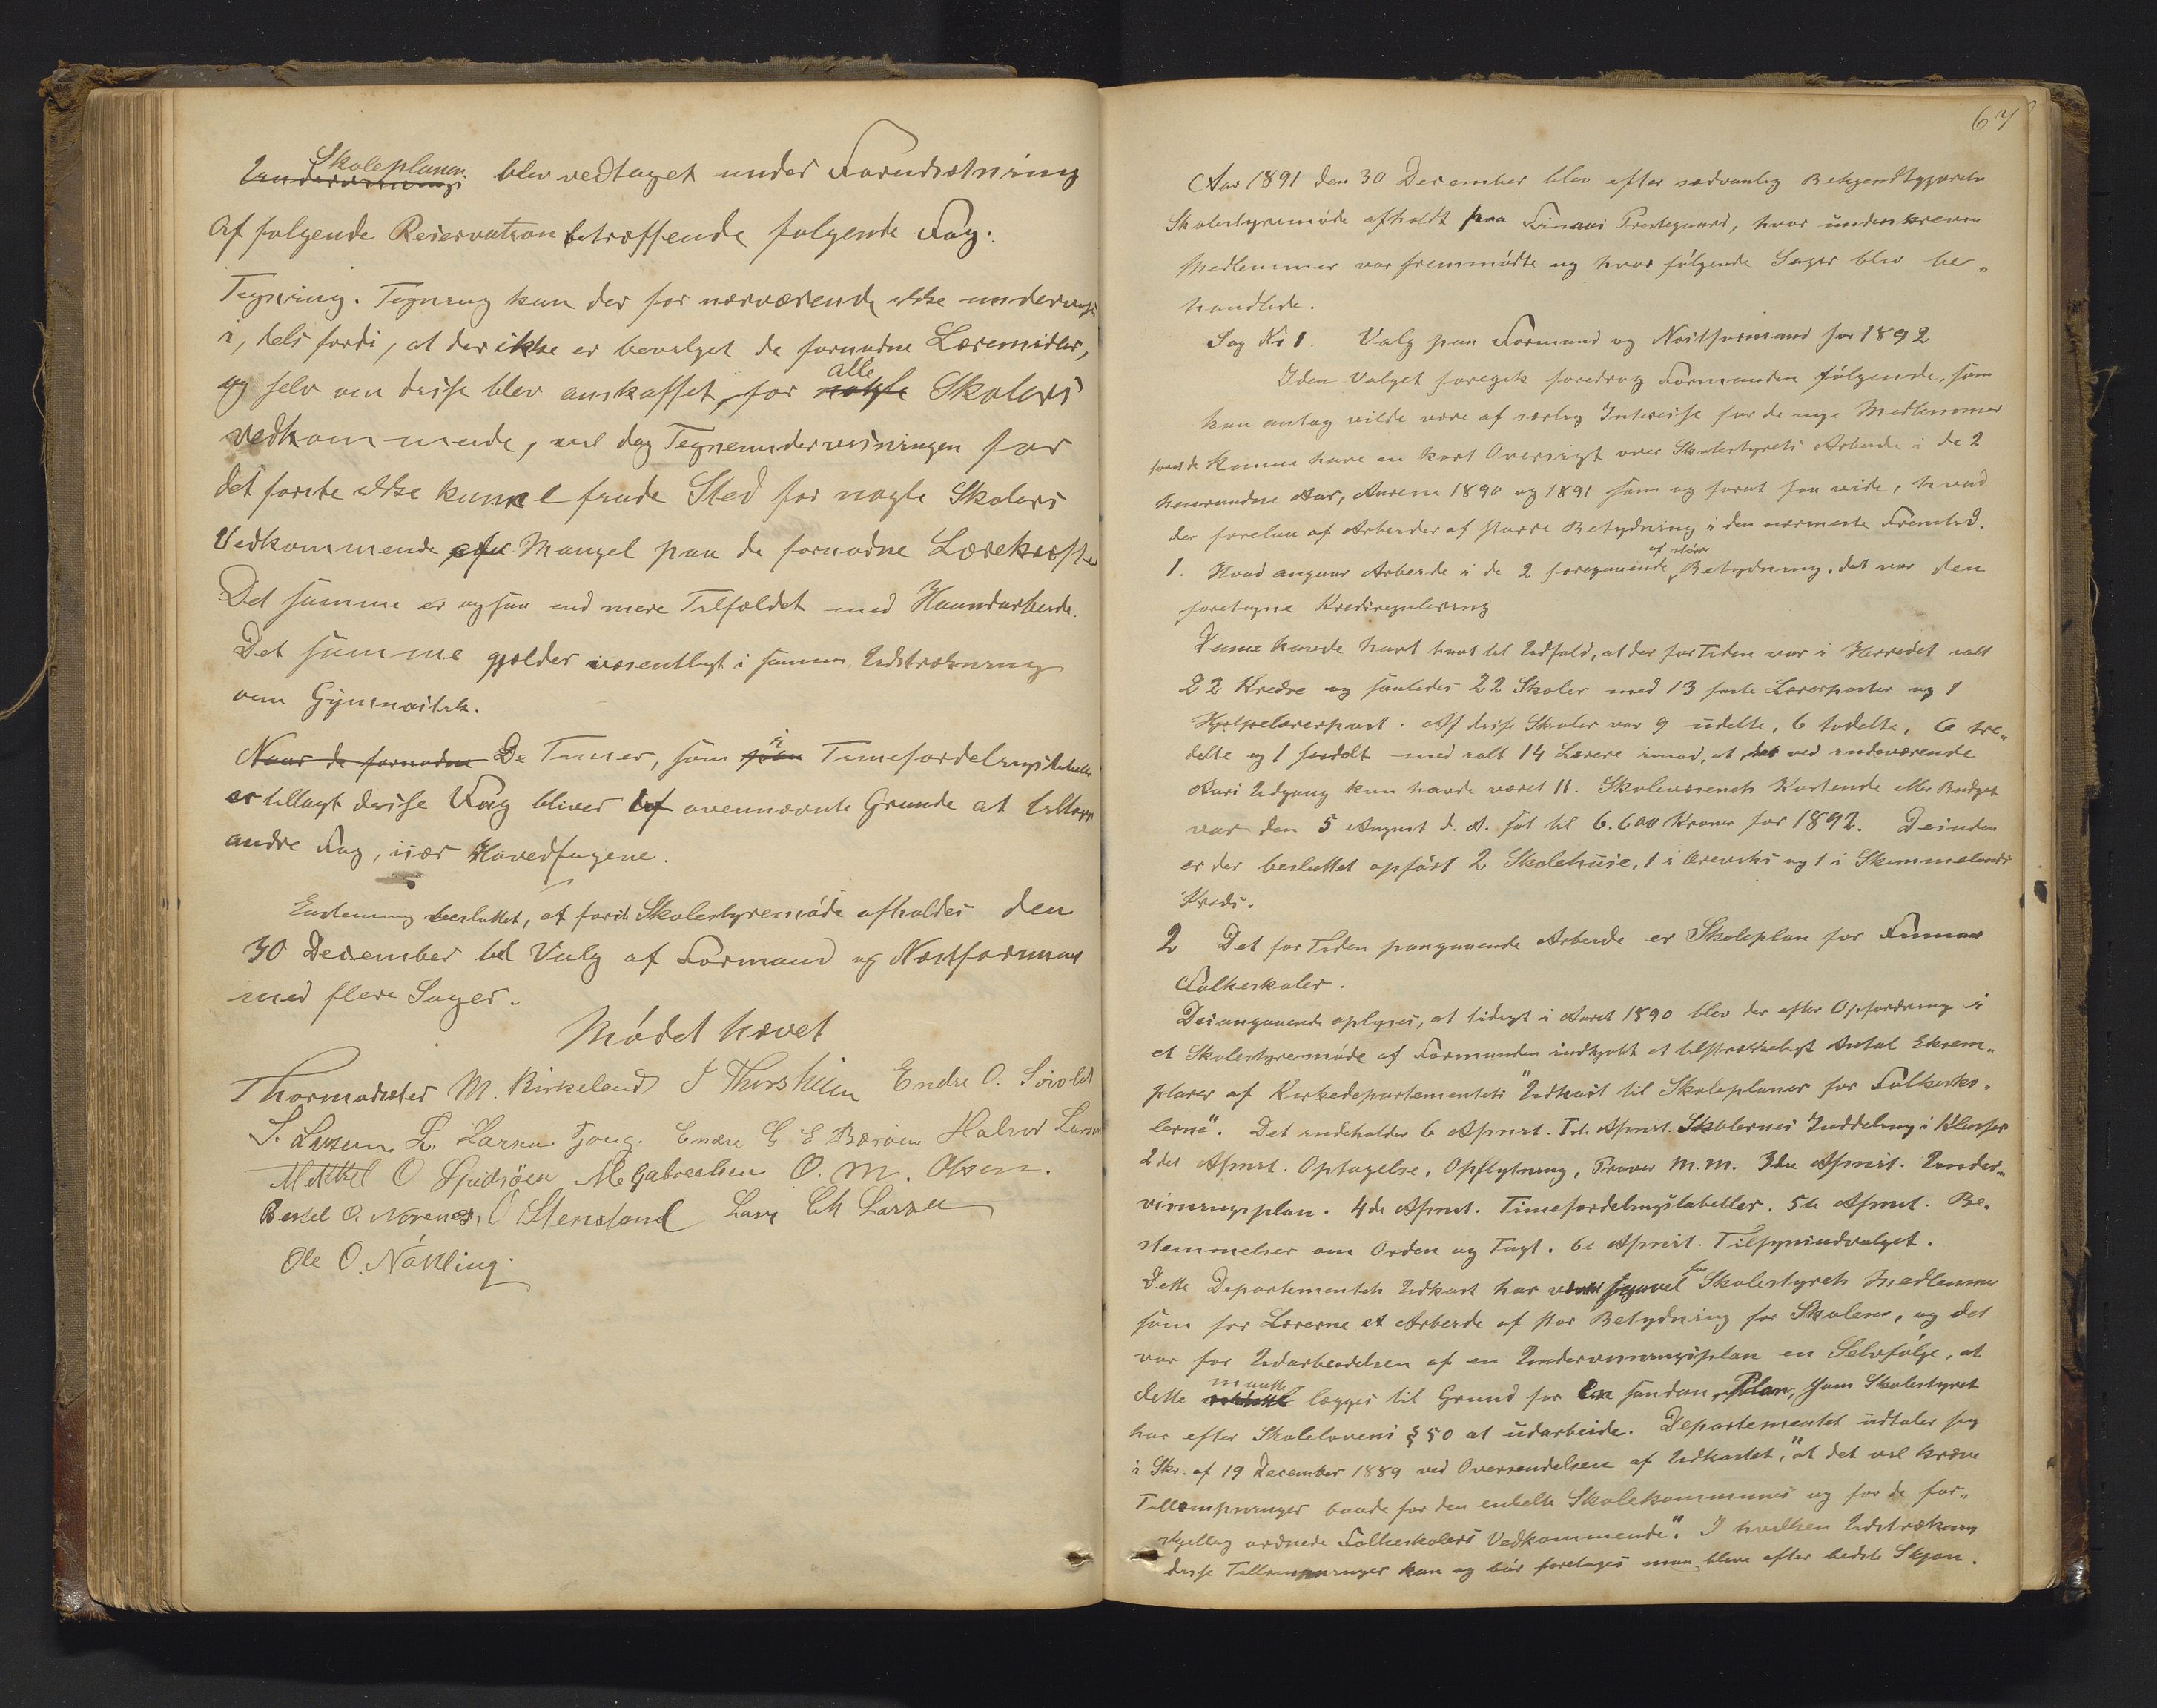 Skoleplanen
Undervisnings blev vedtaget under Forudsætning
af følgende Reservation betræffende følgende Fag:
Tegning. Tegning kan der for nærværende ikke undervises
i, dels fordi, at der ikke er bevilget de fornødne Læremidler,
og selv om disse blev anskaffet, for nogle alle Skolers
vedkommende, vil dog Tegneundervisningen for
det første ikke kunne finde Sted for nogle Skolers
Vedkommende af Mangel paa de fornødne Lærekræfter
Det samme er ogsaa end mere Tilfældet med Haandarbeide.
Det samme gjælder væsentligt i samme Udstrækning
om Gymnastik.
Naar de fornødne De Timer, som i Timefordelingstabellen
er tillagt disse Fag bliver af ovennævnte Grunde at tillægge
andre Fag, især Hovedfagene.
Enstemmig besluttet, at første Skolestyremøde afholdes den
30 December til Valg af Formand og Næstformand
med flere Sager.
Mødet hævet
Thormodsæter M. Birkeland J Thorsheim Endre O. Sørold
S. Larsen L. Larsen Gong. Endre G E Børøen Halvor Larsen
Mikkel O Gjuvsjøen M Gabrielsen O. M. Olsen.
Bertel O. Norenes, O Stensland Lars Ch Larsen
Ole O. Nøkling.
67
Aar 1891 den 30 December blev efter sædvanlig Bekjendtgjørelse
Skolestyremøde afholdt paa Finaas Prestegaard, hvor underskrevne
Medlemmer var fremmødte og hvor følgende Sager blev be-
handlede.
Sag Nr 1. Valg paa Formand og Næstformand for 1892
Inden Valget foregik foredrog Formanden følgende, som
han antog vilde være af særlig Interesse for de nye Medlemmer
for at de kunne have en kort Oversigt over Skolestyrets Arbeide i de 2
henrundne Aar, Aarene 1890 og 1891 som og forat faa vide, hvad
der forelaa af Arbeider af større Betydning i den nærmeste Fremtid.
1. Hvad angaar Arbeide i de 2 foregaaende af større Betydning, det var den
foretagne Kredsregulering
Denne havde havt havt til Udfald, at der for Tiden var i Herredet ialt
22 Kredse og saaledes 22 Skoler med 13 faste Lærerposter og 1
Hjælpelærerpost. Af disse Skoler var 9 udelte, 6 todelte, 6 tre-
delte og 1 med ialt 14 Lærere imod, at der ved indeværende
Aars Udgang kun havde været 11. Skolevæsenets Kostende eller Budget
var den 5 August d. A. sat til 6.600 Kroner for 1892. Desuden
er der besluttet opført 2 Skolehuse, 1 i Øreviks og 1 i Skimmelands
Kreds.
2 Det for Tiden paagaaende Arbeide er Skoleplan for Finnaas
Folkeskoler.
Desangaaende oplyses, at tidligt i Aaret 1890 blev der efter Opfordring i
et Skolestyremøde af Formanden indkjøbt et tilstrækkeligt Antal Eksem-
plarer af Kirkedepartementets "Udkast til Skoleplaner for Folkesko-
lerne". Det indeholder 6 Afsnit. 1ste Afsnit. Skolernes Inddeling i Klasser
2det Afsnit. Optagelse, Opflytning, Prøver m.m. 3die Afsnit. Under-
visningsplan. 4de Afsnit. Timefordelingstabeller. 5te Afsnit. Be-
stemmelser om Orden og Tugt. 6te Afsnit. Tilsynsudvalget.
Dette Departementets Udkast har været saavel for Skolestyrets Medlemmer
som for Lærerne et Arbeide af stor Betydning for Skolen, og det
var for Udarbeidelsen af en Undervisningsplan en Selvfølge, at
dette maatte lægges til Grund for en saadan Plan, som Skolestyret
har efter Skolelovens § 50 at udarbeide. Departementet udtaler sig
i Skr. af 19 December 1889 ved Oversendelsen af Udkastet, "at det vil kræve
Tillempninger baade for den enkelte Skolekommunes og for de for-
skjellig ordnede Folkeskolers Vedkommende". I hvilken Udstrækning
disse Tillempninger kan og bør foretages maa blive efter bedste Skjøn.